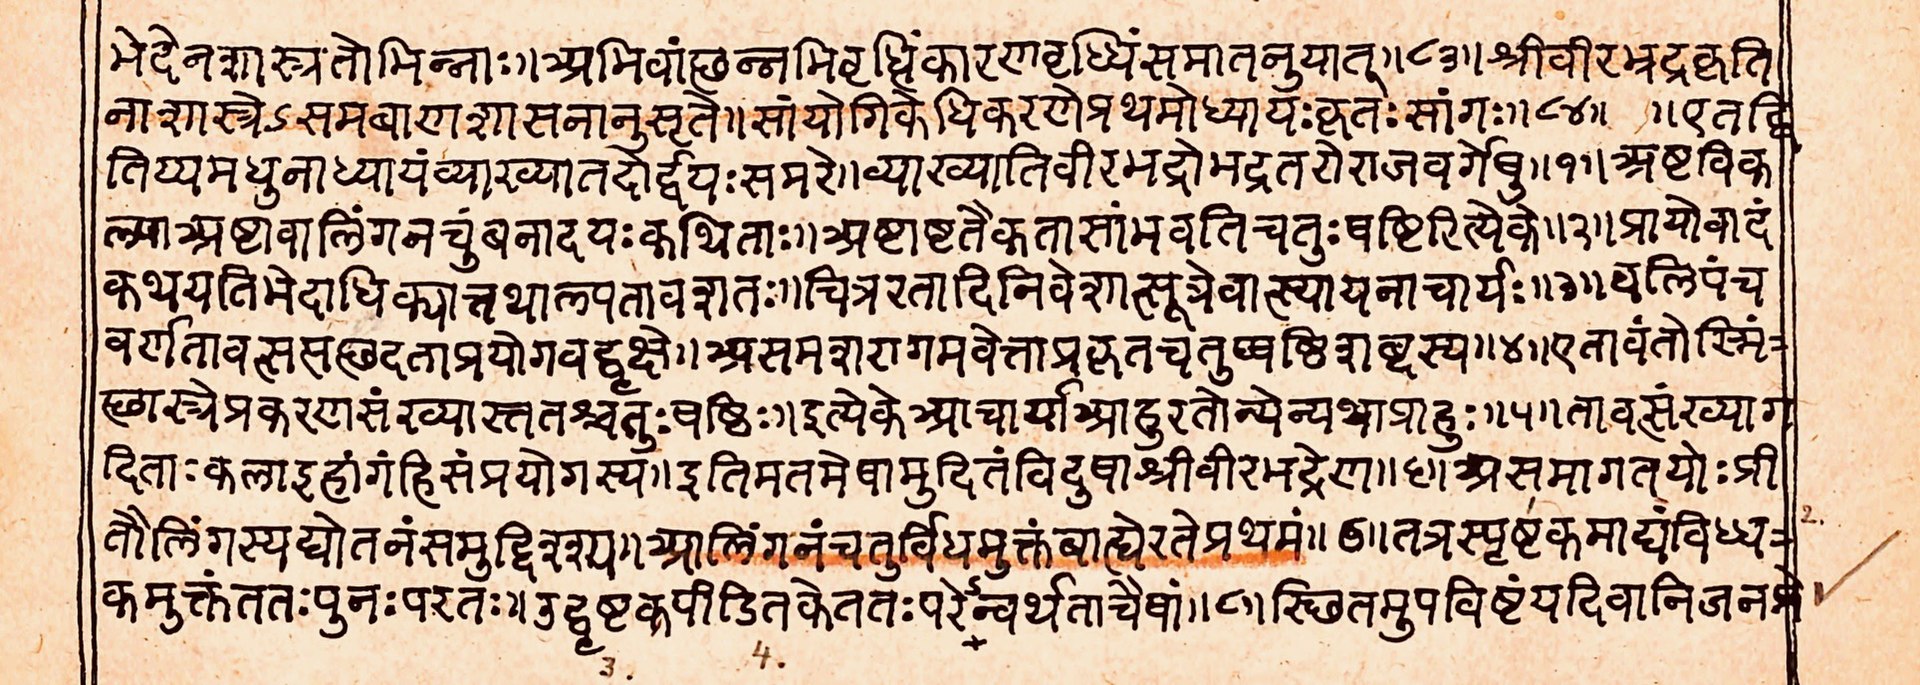 भेदेनशास्त्रतोभिन्नाः॥अभिवांछन्नभिवृद्धिंकारणवृद्धिंसमातनुयात्॥८३॥श्रीवीरभद्रकृति
नाशास्त्रेऽसमबाणशासनानुसृते॥सांयोगिकेधिकरणेप्रथमोध्यायःकृतःसांगः॥८४॥ ॥एतद्द्वि
तिय्यमधुनाध्यायंव्याख्यातदोर्द्वयःसमरे॥व्याख्यातिवीरभद्रोभद्रतरोराजवर्गेषु॥१॥अष्टविक
ल्पाअष्टावालिंगनचुंबनादयःकथिताः॥अष्टाष्टतैकतासांभवतिचतुःषष्टिरित्येके॥२॥प्रायोवादं
कथयतिभेदाधिक्यात्तथाल्पतावशतः॥चित्ररतादिनिवेशात्सूत्रेवात्स्यायनाचार्यः॥३॥वलिपंच
वर्णतावत्ससछदताप्रयोगवद्वृक्षे॥असमशरागमवेत्ताप्रकृतचतुष्षष्ठिशब्दस्य॥४॥एतावंतोस्मिं-
छास्त्रेप्रकरणसंख्यास्ततश्चतुःषष्ठिः॥इत्येकेआचार्याआहुरतोन्येन्यथाप्राहुः॥५॥तावत्संख्याग
दिताःकलाइहांगंहिसंप्रयोगस्य॥इतिमतमेषामुदितंविदुषाश्रीवीरभद्रेण॥६॥असमागतयोःप्री
तौलिंगस्यद्योतनंसमुद्दिश्य॥आलिंगनंचतुर्विधमुक्तंबात्घेरतेप्रथमं॥७॥तत्रस्पृष्टकमाद्यंविध्य- 2.
कमुक्तंततःपुनःपरतः॥उद्घृष्टकपीडितकेततःपरेन्वर्थताचैषां॥८॥स्छितमुपविष्टंयदिवानिजनप्रे
3. 4.